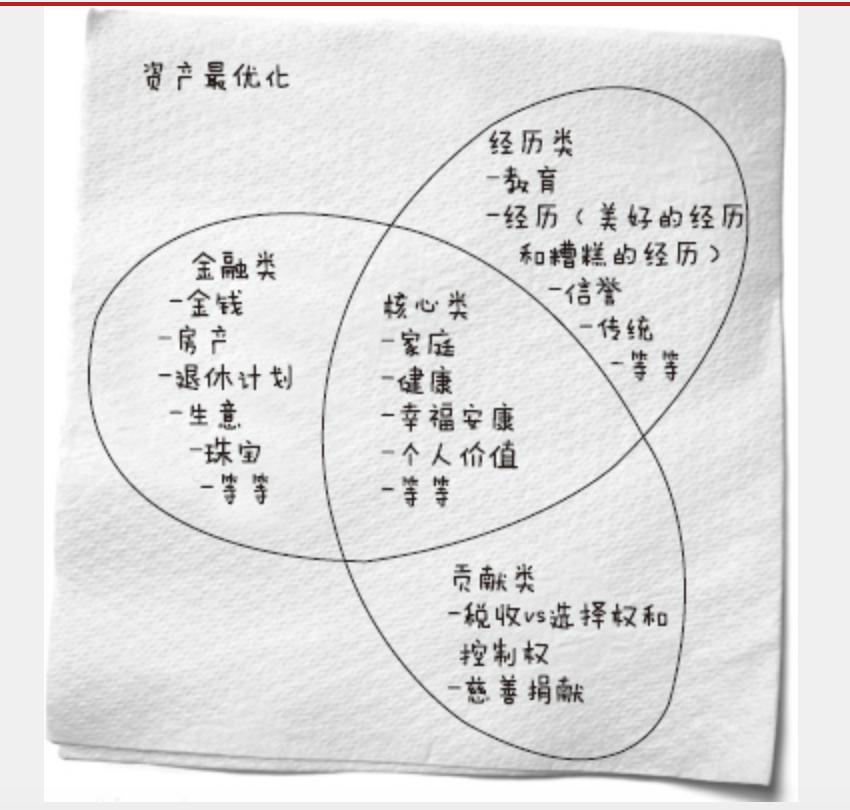 资产最优化
经历类
-教育
-经历（美好的经历
和糟糕的经历）
-信誉
-传统
-等等
金融类
-金钱
-房产
-退休计划
-生意
-珠宝
-等等
核心类
-家庭
-健康
-幸福安康
-个人价值
-等等
贡献类
-税收vs选择权和
控制权
-慈善捐献